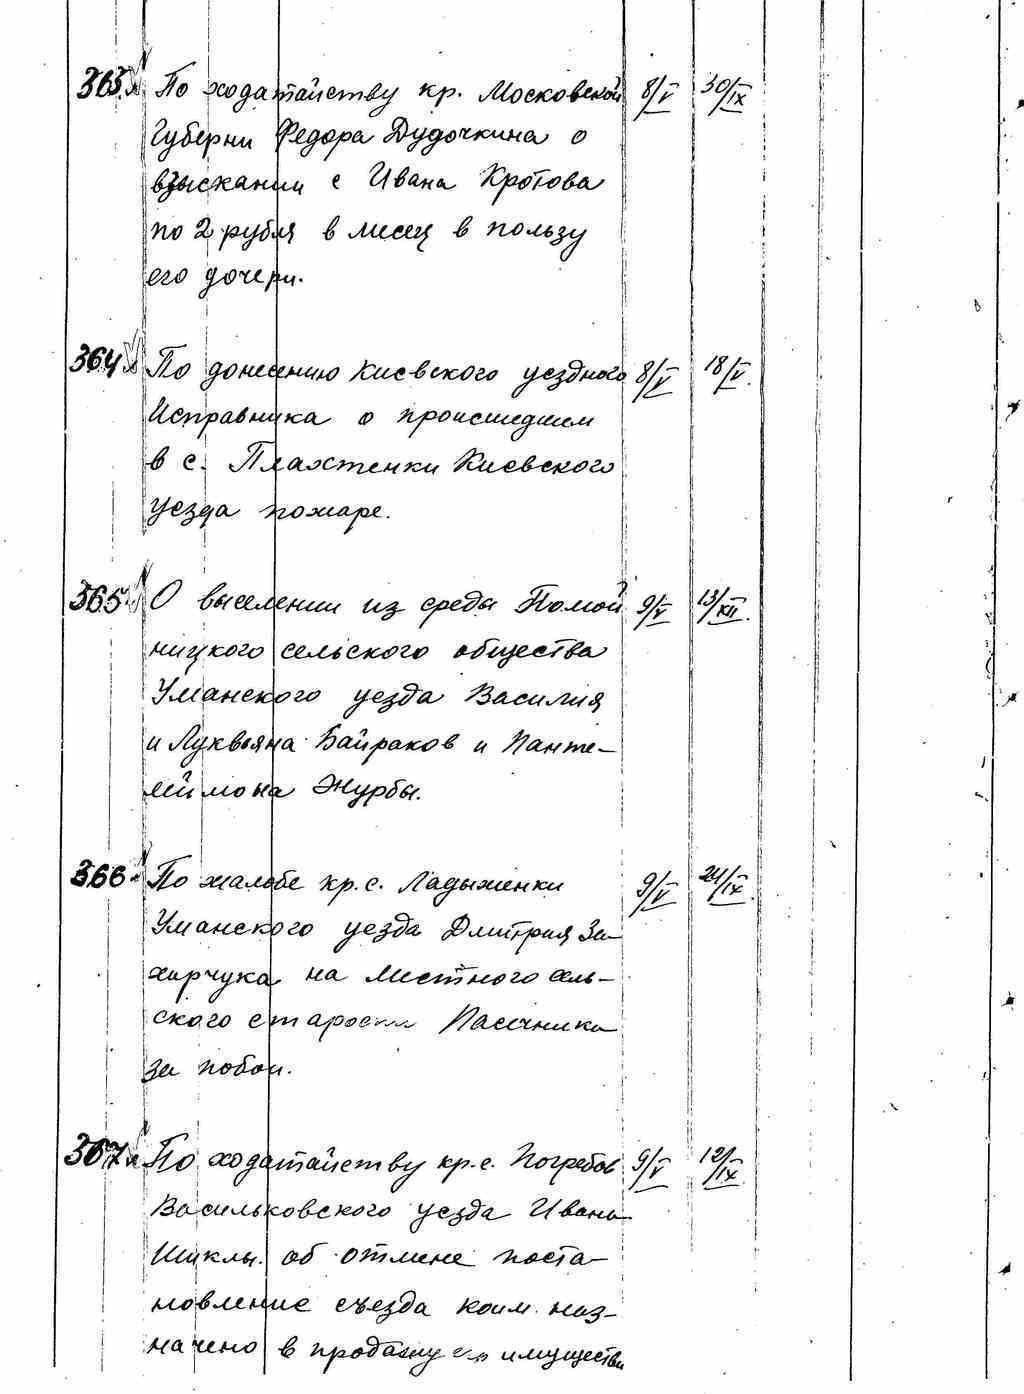 363 По ходатайству кр. Московской 8/V 30/IX
Губерни Федора Дудочкина о
взыскании с Ивана Кротова
по 2 рубля в месец в пользу
его дочери.
364 По донесению Киевского уездного 8/V 18/V.
Исправника о происшедшем
в с. Плахтенки Киевского
уезда пожаре.
365 О выселении из среды Помой 9/V 13/XII.
ницкого сельского общества
Уманского уезда Василия
и Луквяна Байраков и Панте-
леймона Журбы.
366 По жалобе кр. с. Ладыженки 9/V 24/IX.
Уманского уезда Дмитрия За-
харчука на местного сель-
ского старосты Пасечника
за побои.
367 По ходатайству кр. с. Погребов 9/V 12/IX
Васильковского уезда Ивана
Шиклы. об отмене поста-
новление съезда коим наз-
начено в продажу его имущества